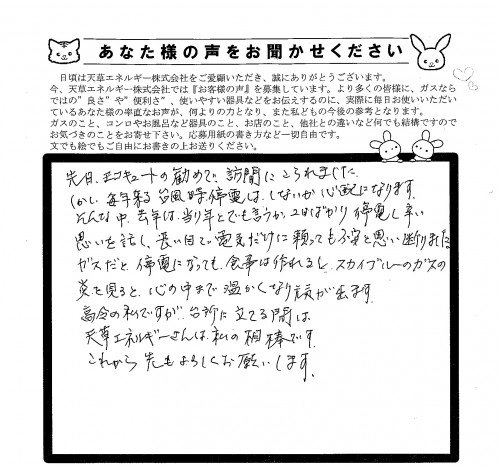 あなた様の声をお聞かせください
日頃は天草エネルギー株式会社をご愛顧いただき、誠にありがとうございます。
今、天草エネルギー株式会社では『お客様の声』を募集しています。より多くの皆様に、ガスなら
ではの”良さ”や”便利さ”、使いやすい器具などをお伝えするのに、実際に毎日お使いいただい
ているあなた様の率直なお声が、何よりの力となり、また私どもの今後の参考となります。
ガスのこと、コンロやお風呂など器具のこと、お店のこと、他社との違いなど何でも結構ですので
お気づきのことをお寄せ下さい。応募用紙の書き方など一切自由です。
文でも絵でもご自由にお書きの上お送りください。
先日、エコキュートの勧めで、訪問にこられました。
しかし毎年来る台風時停電は、しないか心配になります。
そんな中、去年は、当り年とでも言うか2日ばかり停電し辛い
思いを話し、長い目で、電気だけに頼っても不安と思い断りました
ガスだと停電になっても、食事は作れるし、スカイブルーのガスの
炎を見ると、心の中まで温かくなり元気が出ます
高令の私ですが、台所に立てる間は
天草エネルギーさんは、私の相棒です。
これから先もよろしくお願いします。